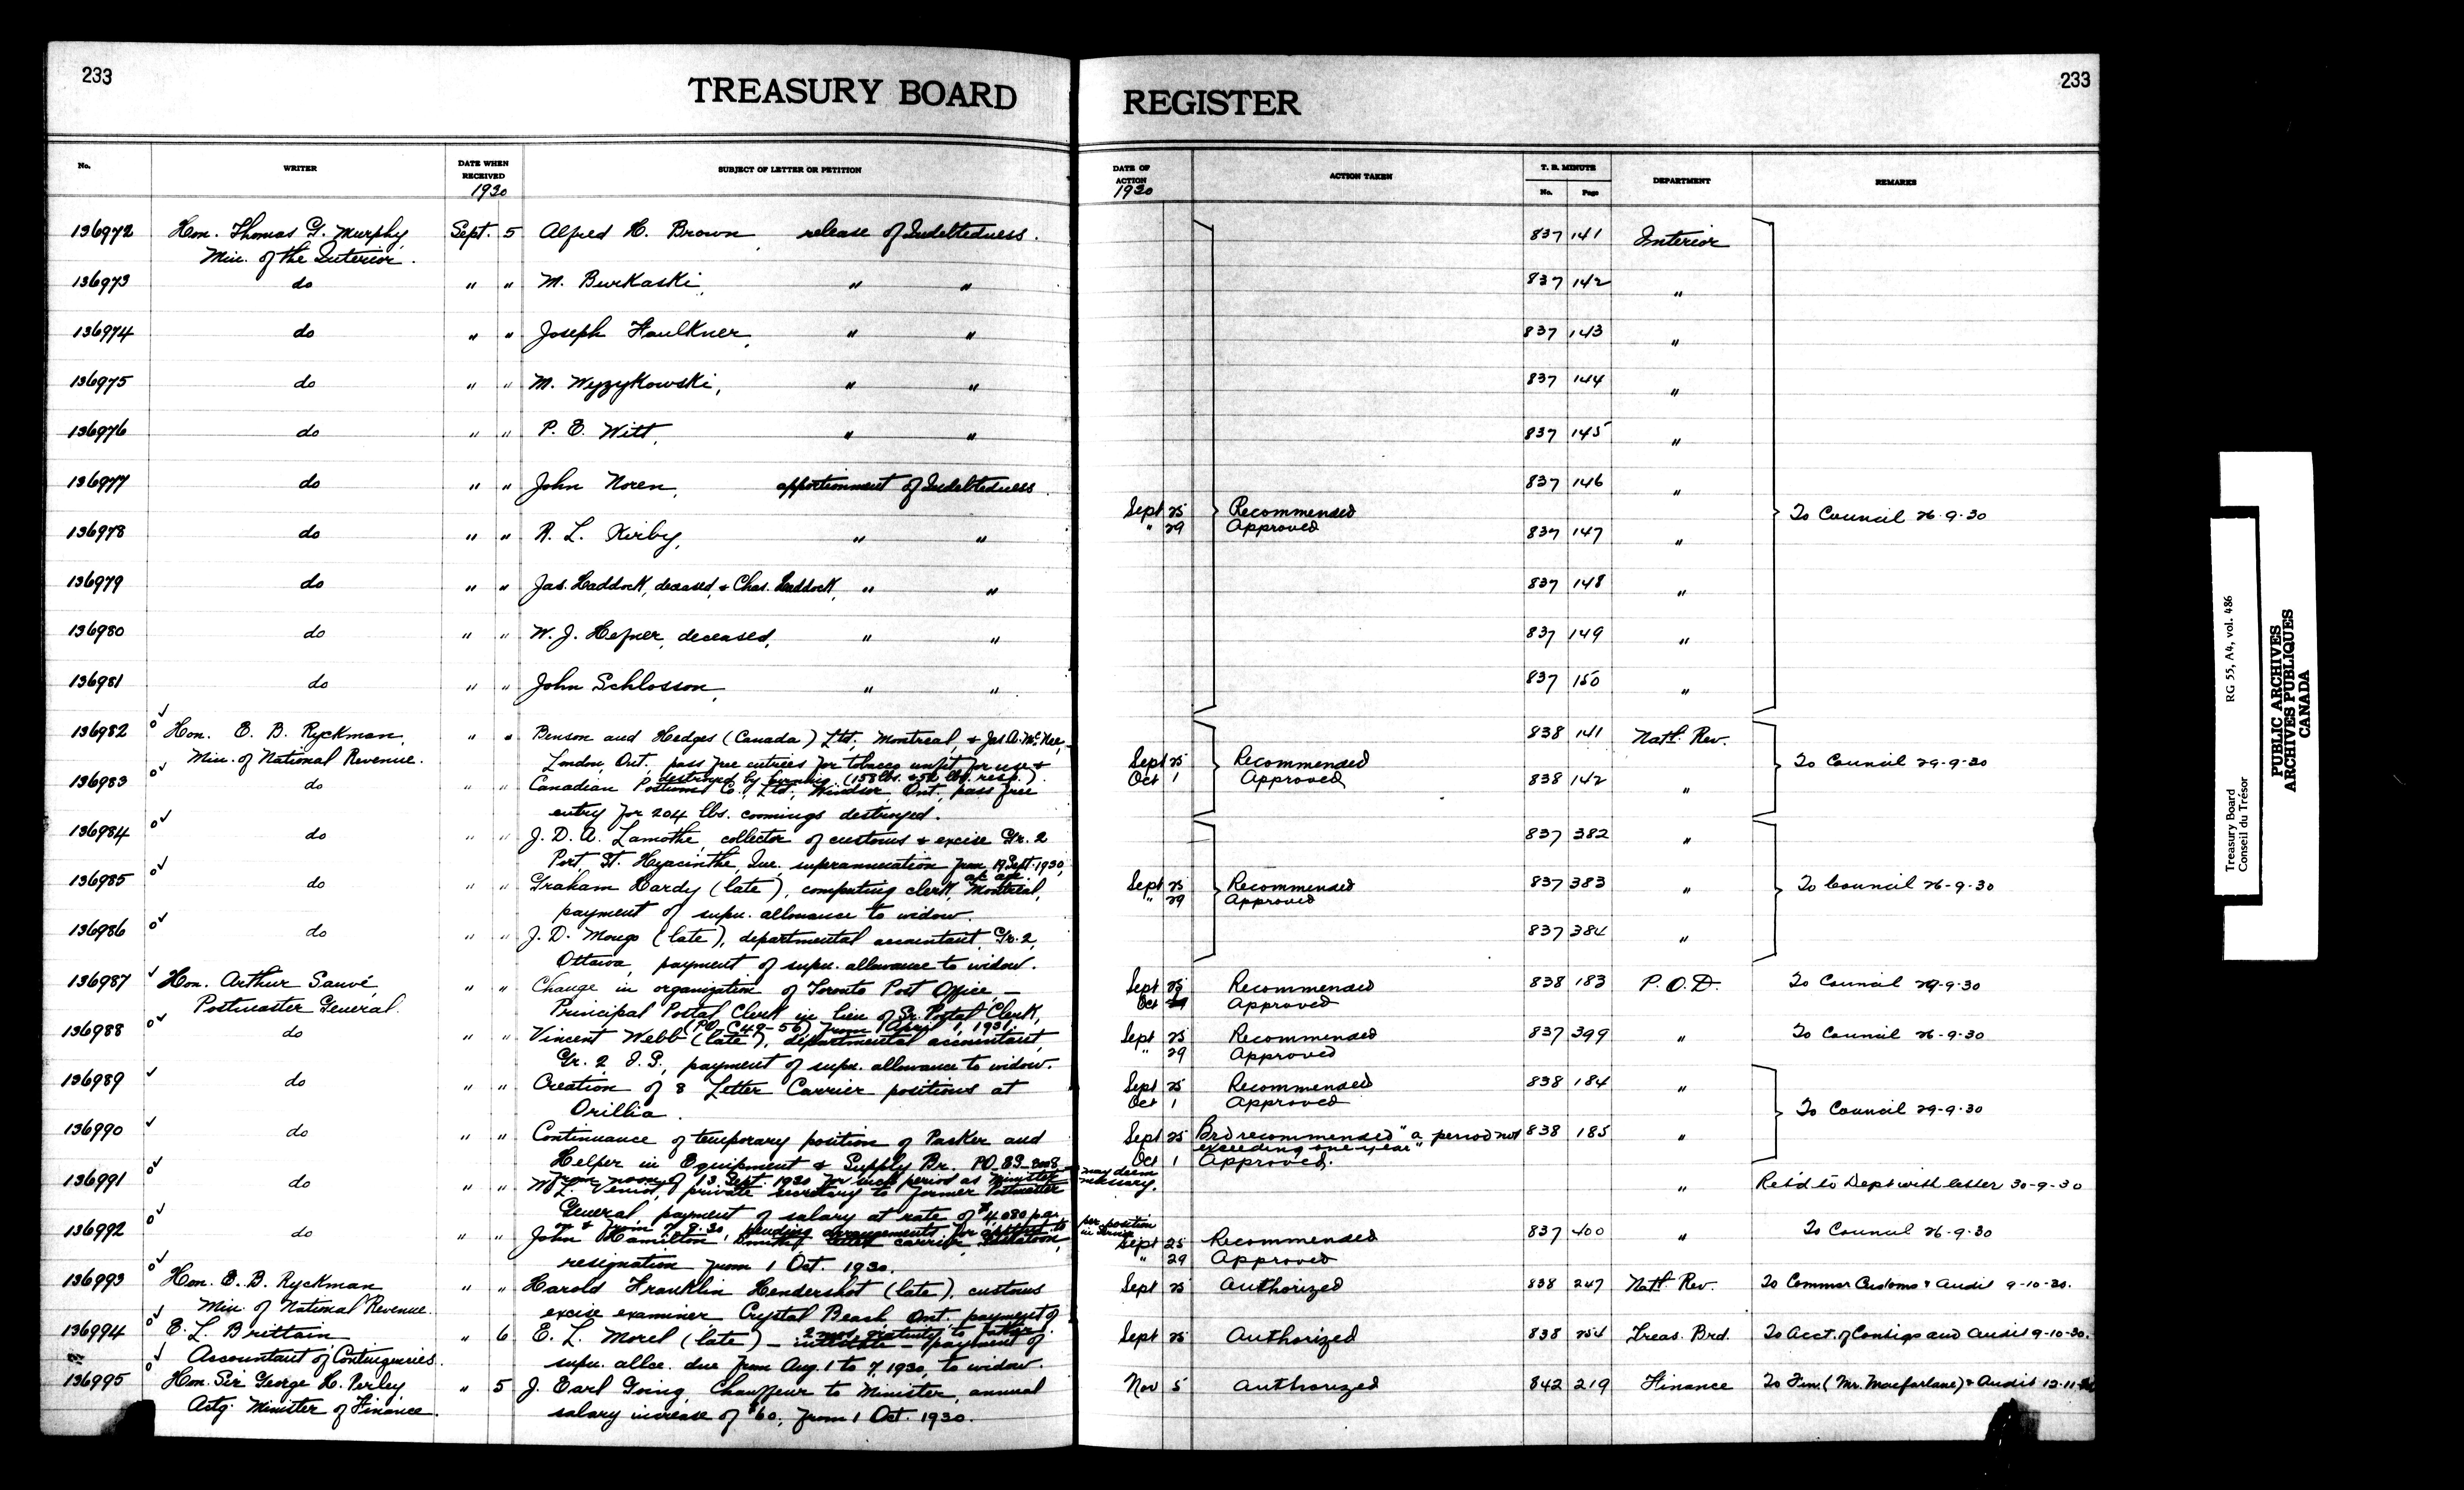 233
TREASURY BOARD
REGISTER
233
No. WRITER DATE WHEN RECEIVED 1930 SUBJECT OF LETTER OR PETITION DATE OF ACTION 1930 ACTION TAKEN T. B. MINUTE No. Page DEPARTMENT REMARKS
136972 Hon. Thomas G. Murphy, Sept. 5 Alfred H. Brown, release of Indebtedness. 837 141 Interior
Min. of the Interior.
136973 do " " M. Burkaski, " " 837 142 "
136974 do " " Joseph Faulkner, " " 837 143 "
136975 do " " M. Wyzykowski, " " 837 144 "
136976 do " " P. E. Witt, " " 837 145 "
136977 do " " John Noren, apportionment of Indebtedness. 837 146 "
Sept 25 Recommended To Council 26-9-30
" 29 Approved
136978 do " " R. L. Kirby, " " 837 147 "
136979 do " " Jas. Haddock, deceased, & Chas. Haddock, " " 837 148 "
136980 do " " W. J. Hefner, deceased, " " 837 149 "
136981 do " " John Schlosson, " " 837 150 "
136982 Hon. E. B. Ryckman, " " Benson and Hedges (Canada) Ltd., Montreal, & Jas. A. McNee, 838 141 Natl. Rev.
Min. of National Revenue. London, Ont. pass free entries for tobacco unfit for use & Sept 25 Recommended To Council 29-9-30
destroyed by burning. (158 lbs. & lbs. resp.). Oct 1 Approved
136983 do " " Canadian Postum Co., Ltd., Windsor, Ont., pass free 838 142 "
entry for 204 lbs. coomings destroyed.
136984 do " " J. D. A. Lamothe, collector of customs & excise Gr. 2 837 382 "
Port St. Hyacinthe, Que. superannuation from 19 Sept. 1930, a/c age.
136985 do " " Graham Hardy (late), computing clerk, Montreal, Sept 25 Recommended 837 383 " To Council 26-9-30
payment of supn. allowance to widow. " 29 Approved
136986 do " " J. D. Mongo (late), departmental accountant, Gr. 2, 837 384 "
Ottawa, payment of supn. allowance to widow.
136987 Hon. Arthur Sauvé, " " Change in organization of Toronto Post Office — Sept 25 Recommended 838 183 P.O.D. To Council 29-9-30
Postmaster General. Principal Postal Clerk in lieu of Sr. Postal Clerk, Oct Approved
(PO-C49-56) from April 1, 1931.
136988 do " " Vincent Webb (late), departmental accountant, Sept 25 Recommended 837 399 " To Council 26-9-30
Gr. 2, payment of supn. allowance to widow. " 29 Approved
136989 do " " Creation of 8 Letter Carrier positions at Sept 25 Recommended 838 184 "
Orillia. Oct 1 Approved To Council 29-9-30
136990 do " " Continuance of temporary position of Packer and Sept 25 Brd recommended "a period not exceeding one year" 838 185 "
Helper in Equipment & Supply Br. Oct 1 Approved.
from noon of 13 Sept. 1930 for such period as Minister may deem necessary.
136991 do " " W. L. Veniot, private secretary to former Postmaster " Retd to Dept with letter 30-9-30
General payment of salary at rate of $4,080 p.a.
on & from 7.8.30, pending arrangements for apptmt. to per. position in Service
136992 do " " John Hamilton Smith, letter carrier, Saskatoon, Sept 25 Recommended 837 400 " To Council 26-9-30
resignation from 1 Oct. 1930. " 29 Approved
136993 Hon. E. B. Ryckman " " Harold Franklin Hendershot (late), customs Sept 25 Authorized 838 247 Natl. Rev. To Commnr Customs & Audit 9-10-30.
Min. of National Revenue. excise examiner, Crystal Beach, Ont. payment of
2 mos. gratuity to father.
136994 E. L. Brittain " 6 E. L. Morel (late) — intestate — payment of Sept 25 Authorized 838 254 Treas. Brd. To Acct. of Contigs and Audit 9-10-30.
Accountant of Contingencies. supn. allce. due from Aug. 1 to 7, 1930, to widow.
136995 Hon. Sir George H. Perley " 5 J. Earl Going, Chauffeur to Minister, annual Nov 5 Authorized 842 219 Finance To Fin. (Mr. Macfarlane) & Audit 12-11-30
Actg. Minister of Finance. salary increase of $60, from 1 Oct. 1930.
Treasury Board RG 55, A4, vol. 486
Conseil du Trésor
PUBLIC ARCHIVES
ARCHIVES PUBLIQUES
CANADA